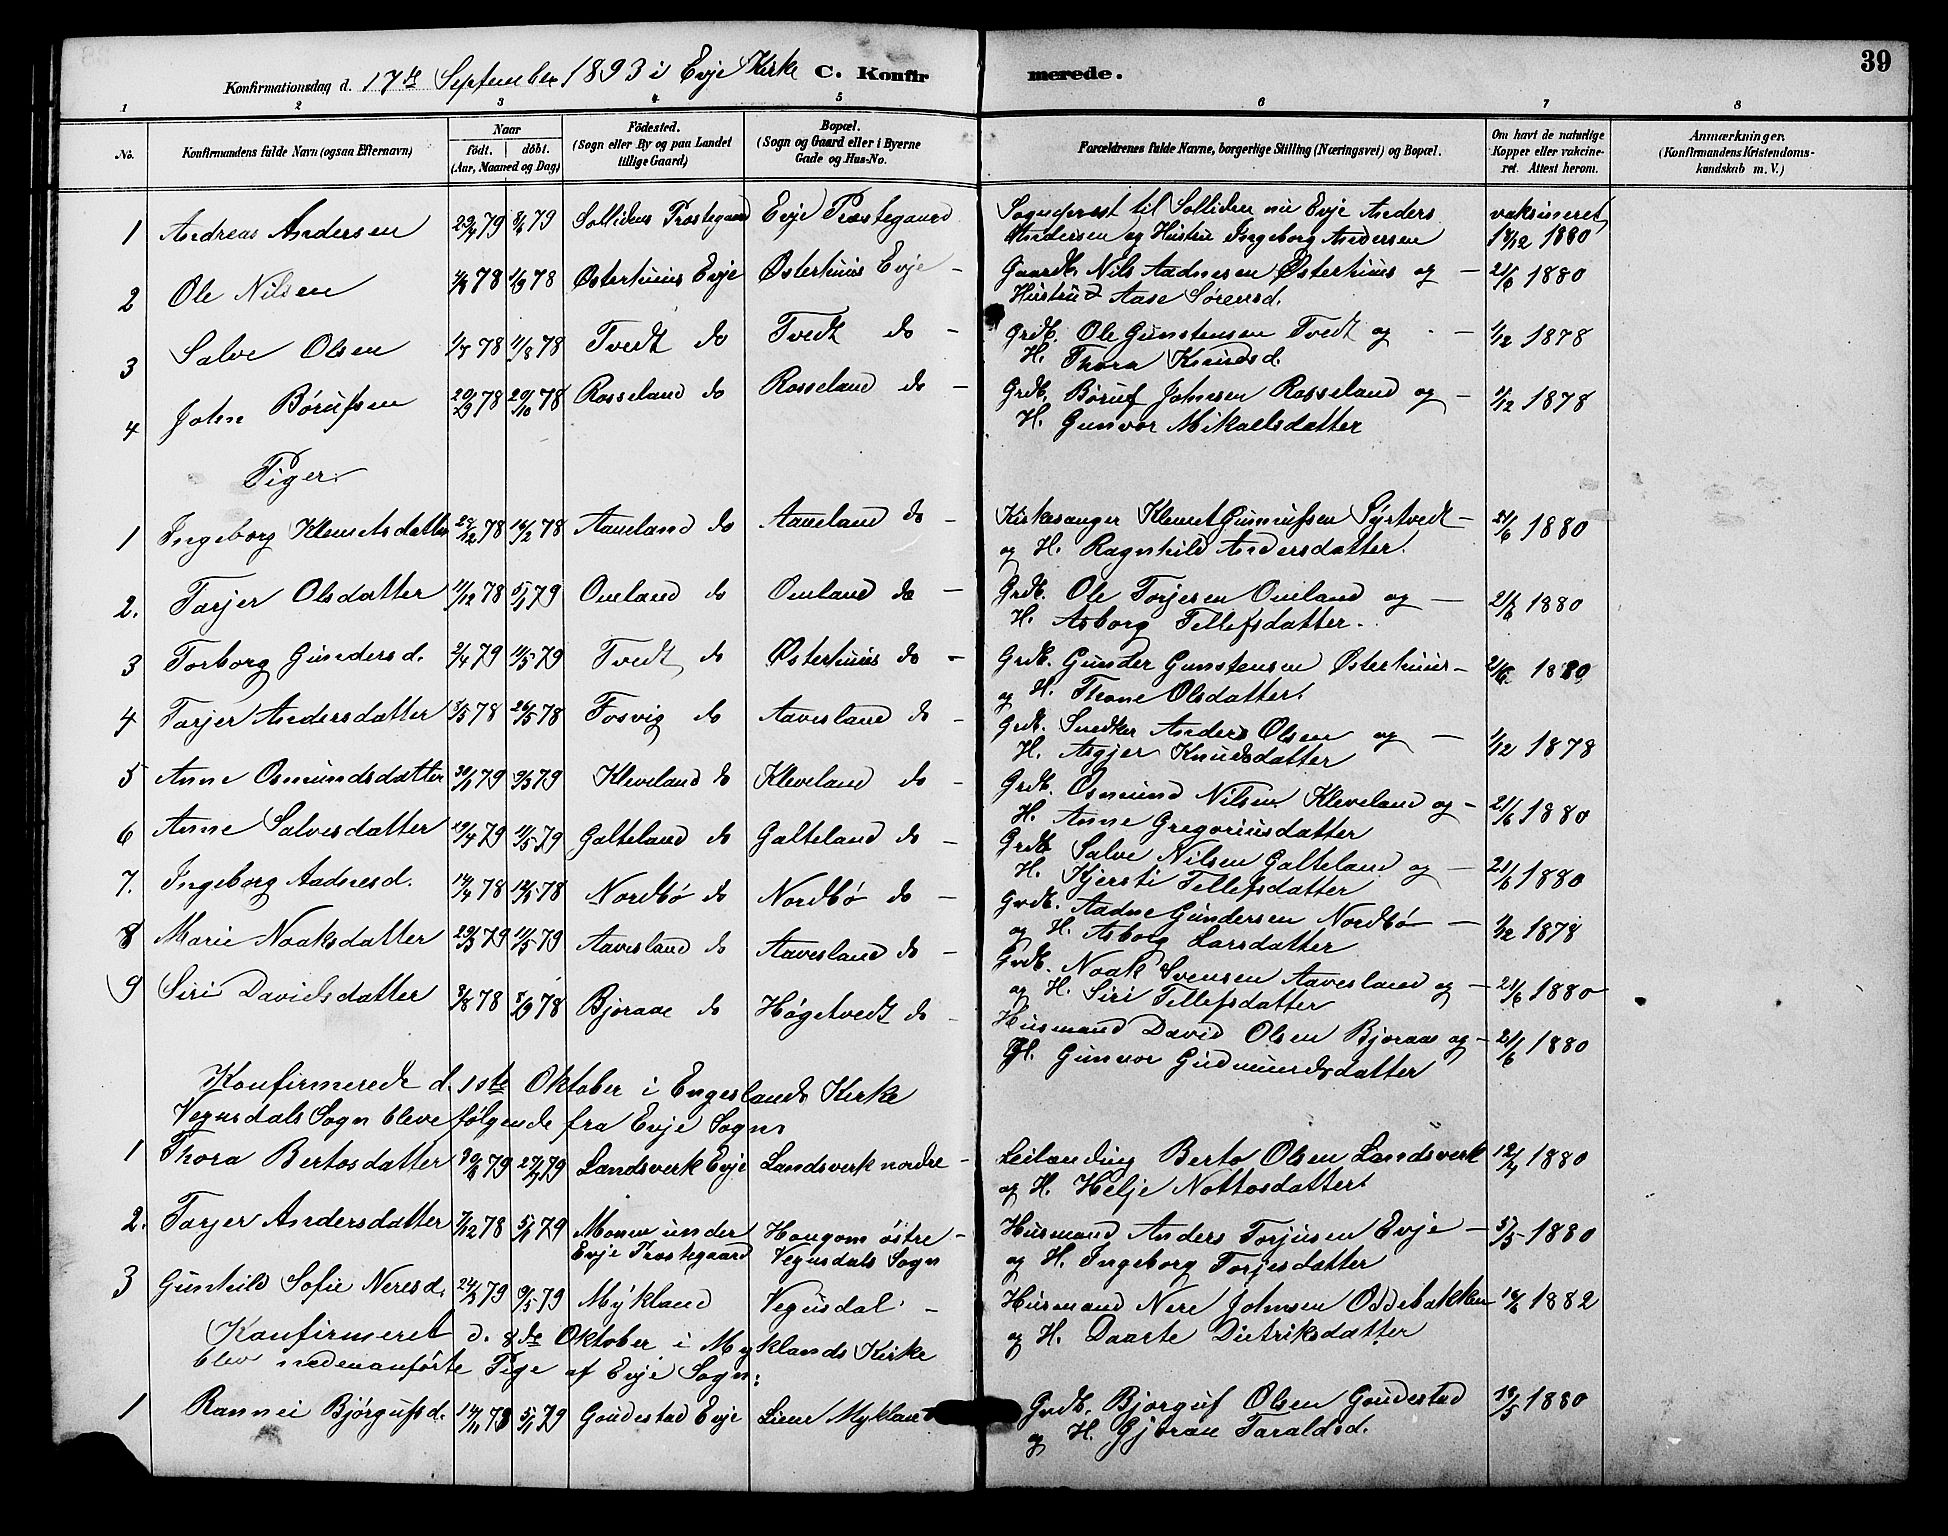 39
Konfirmationsdag d. 17de September 1893 i Evje Kirke C. Konfirmerede.
1 2 3 4 5 6 7 8
No. Konfirmandens fulde Navn (ogsaa Efternavn) Naar födt. döbt. (Aar, Maaned og Dag) Födested. (Sogn eller By og paa Landet tillige Gaard) Bopæl. (Sogn og Gaard eller i Byerne Gade og Hus-No. Forældrenes fulde Navne, borgerlige Stilling (Næringsvei) og Bopæl. Om havt de naturlige Kopper eller vakcineret. Attest herom. Anmærkninger. (Konfirmandens Kristendomskundskab m. V.)
1 Andreas Andersen 79 79 Sollidens Prostegaard Evje Præstegaard Sogneprest til Solliden nu Evje Anders vaksineret
Andersen og Hustru Ingeborg Andersen 1880
2 Ole Nilsen 78 78 Østerhuus Evje Østerhuus Evje - Gaardb. Nils Aadnesen Østerhuus og - 21/6 1880
Hustru Aase Sørensd.
3 Salve Olsen 78 11/8 78 Tvedt do Tvedt do - Grdb. Ole Gunstensen Tvedt og - 1/12 1878
H. Thora Knudsd.
4 John Børufsen 20/9 78 20/10 78 Rosseland do Rosseland do - Grdb. Børuf Johnsen Rosseland og - 1/12 1878
H. Gunvor Mikaelsdatter
Piger.
1 Ingeborg Klemetsdatter 78 78 Aaneland do Aaneland do - Kirkesanger Klemet Gunnufsen Syrtvedt - 21/6 1880
og H. Ragnhild Andersdatter.
2. Tarjer Olsdatter 11/12 78 5/1 79 Omland do Omland do - Grdb. Ole Torjesen Omland og - 21/6 1880
H. Asborg Tellefsdatter.
3 Torborg Gundersd. 2/4 79 11/5 79 Tvedt do Østerhuus do - Grdb. Gunder Gunstensen Østerhuus - 21/6 1880
og H. Thone Olsdatter.
4 Tarjer Andersdatter 3/5 78 26/5 78 Fosvig do Aavesland do - Grdb. Snedker Anders Olsen og - 1/12 1878
H. Asgjer Knudsdatter
5 Anne Osmundsdatter 79 79 Kleveland do Kleveland do - Grdb. Osmund Nilsen Kleveland og - 21/6 1880
H. Anne Gregoriusdatter
6 Anne Salvesdatter 19/4 79 11/5 79 Galteland do Galteland do - Grdb Salve Nilsen Galteland og - 21/6 1880
H. Kjersti Tellefsdatter
7. Ingeborg Aadnesd. 14/4 78 78 Nordbø do Nordbø do - Grdb. Aadne Gundersen Nordbø - 1/12 1878
og H. Asborg Larsdatter
8 Marie Noaksdatter 20/3 79 11/5 79 Aavesland do Aavesland do - Grdb. Noak Svensen Aavesland og - 21/6 1880
og H. Siri Tellefsdatter
9 Siri Davidsdatter 3/8 78 8/9 78 Bjoraae do Høgetvedt do - Husmand David Olsen Bjoraas og - 21/6 1880
H. Gunvor Gudmundsdatter
Konfirmerede d. 1ste Oktober i Engeslands Kirke
Vegusdals Sogn bleve følgende fra Evje Sogn:
1 Thora Bertosdatter 79 79 Landsverk Evje Landsverk nordre - Leilænding Berto Olsen Landsverk 1880
og H. Helje Nottosdatter.
2. Tarjer Andersdatter 7/12 78 5/1 79 Monen under Evje Prostegaard Haugom østre - Vegusdals Sogn Husmand Anders Torjusen Evje - 5/5 1880
og H. Ingeborg Torjesdatter
3 Gunhild Sofie Neresd. 24/3 79 9/5 79 Mykland Vegusdal - Husmand Nere Johnsen Oddebakken 1882
og H. Daarte Dietriksdatter
Konfirmeret d. 8de Oktober i Myklands Kirke
blev nedenanførte Pige af Evje Sogn:
1 Rannei Bjørgufsd. 78 5/1 79 Goudestad Evje Liene Mykland Grdb. Bjorguf Olsen Goudestad 18/5 1880
og H. Gjøran Taraldsd.